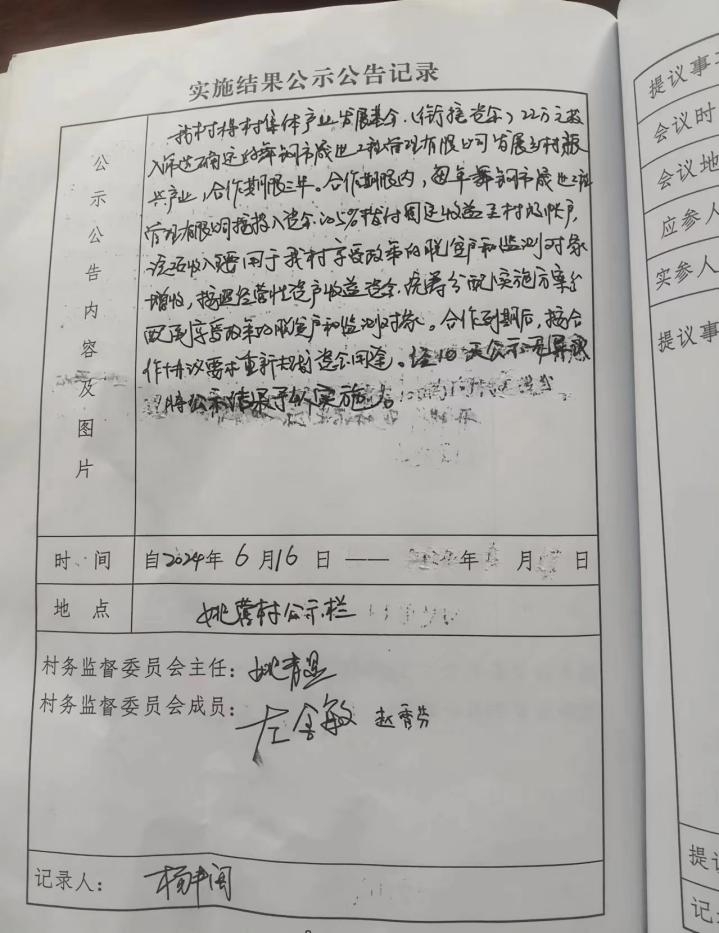 实施结果公示公告记录
公示公告内容及图片
我村将村集体产业发展基金（衔接资金）22万元投
入舞钢市晟世工程管理有限公司发展乡村振
兴产业，合作期限三年。合作期限内，每年舞钢市晟世工程
管理有限公司按投入资金的5%拨付固定收益至村级帐户，
该项收入将用于我村享受政策的脱贫户和监测对象
增收，按照经营性资产收益资金统筹分配实施方案分
配到享受政策的脱贫户和监测对象。合作到期后，按合
作协议要求重新规划资金用途。经10天公示无异议
将公示结果予以实施
时 间 自2024年 6 月16 日 —— 年 月 日
地 点 姚营村公示栏
村务监督委员会主任：姚
村务监督委员会成员：
左 敏 赵秀芬
记录人： 杨
提议事
会议时
会议地
应参人
实参人
提议事
提议
记